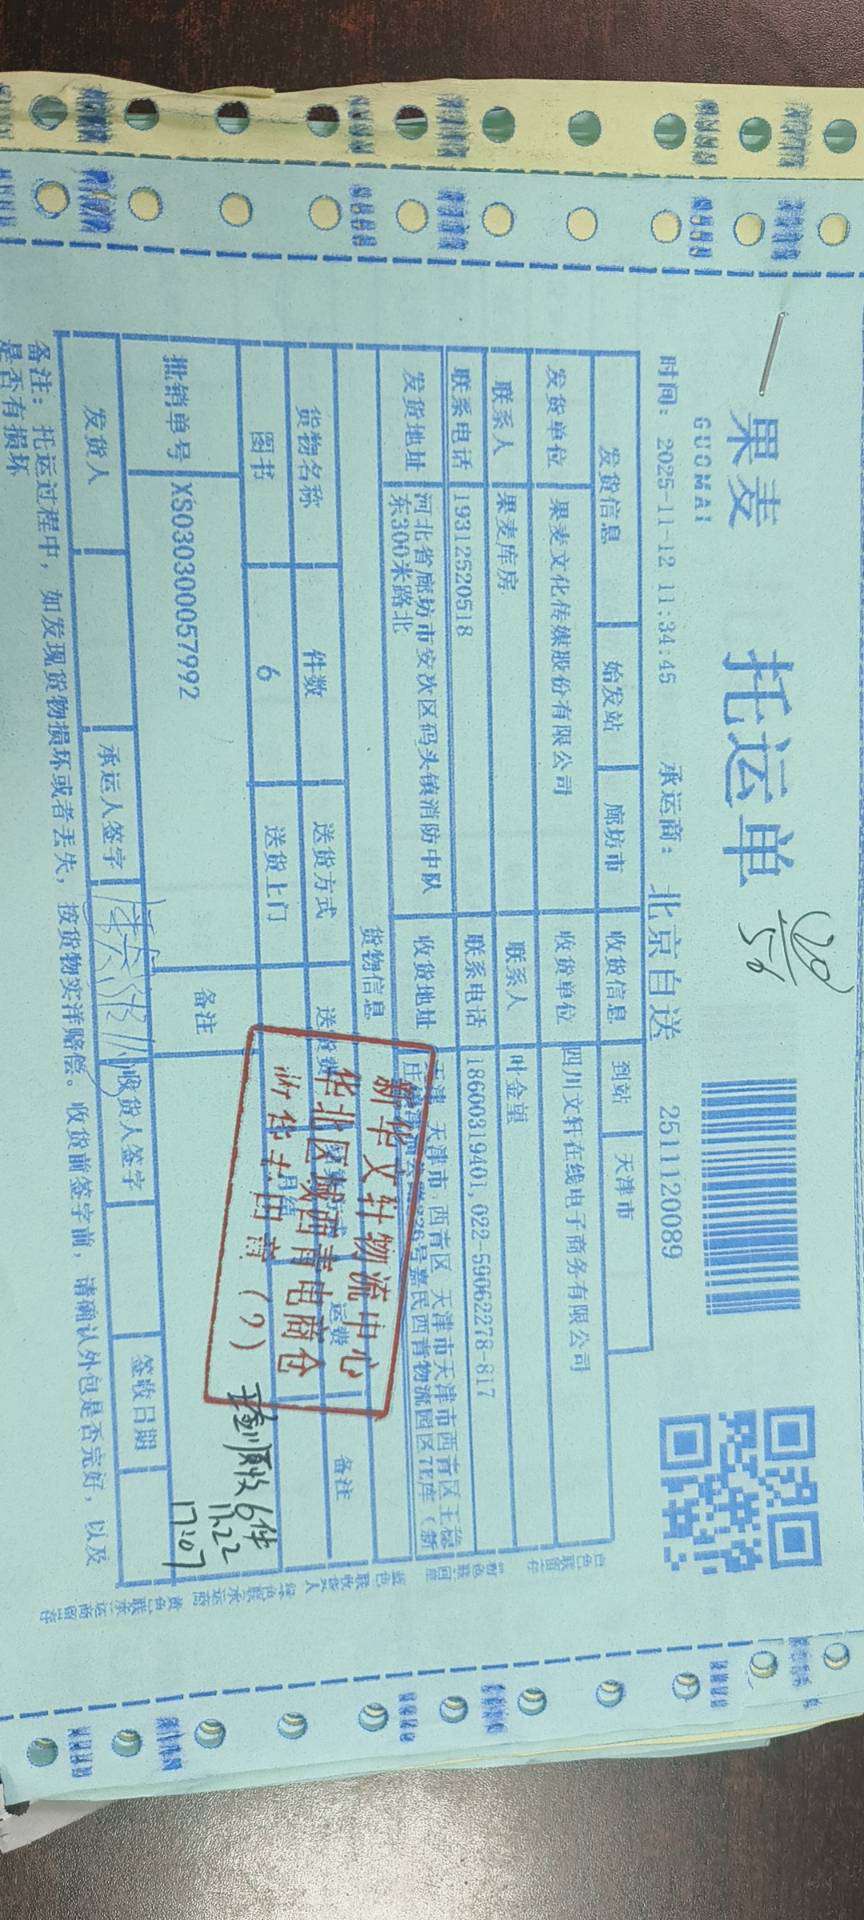 果麦 托运单
GUOMAI
时间: 2025-11-12 11:34:45 承运商: 北京自送 2511120089
发货信息 始发站 廊坊市 收货信息 到站 天津市
发货单位 果麦文化传媒股份有限公司 收货单位 四川文轩在线电子商务有限公司
联系人 果麦库房 联系人 叶金望
联系电话 19312520518 联系电话 18600319401,022-59062278-817
发货地址 河北省廊坊市安次区码头镇消防中队 收货地址 天津 天津市 西青区 天津市天津市西青区王稳
东300米路北 号嘉民西青物流园区7E库(新
货物信息
货物名称 件数 送货方式 运费 备注
图书 6 送货上门 月结
批销单号 XS030300057992 备注
新华文轩物流中心
华北区域西青电商仓
实收6件
11.22
17:07
发货人 承运人签字 收货人签字 签收日期
备注: 托运过程中, 如发现货物损坏或者丢失, 按货物实洋赔偿。收货前签字前, 请确认外包是否完好, 以及
是否有损坏
白色联留存 粉色联回单 蓝色联收货人 绿色联承运商 黄色联承运商留存